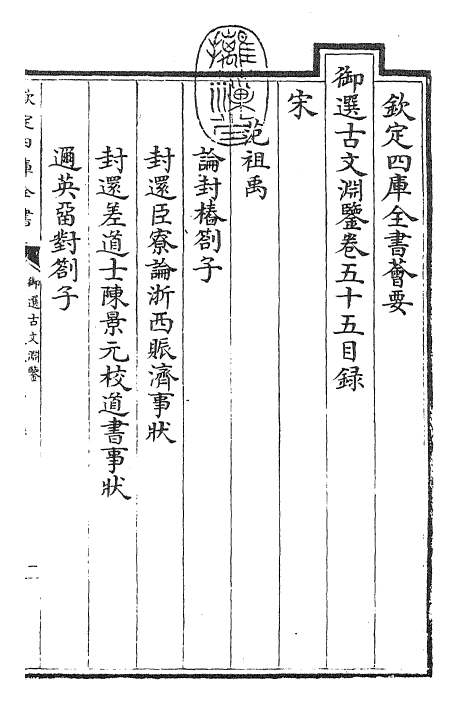 欽定四庫全書薈要
御選古文淵鑒卷五十五目録
宋
范祖禹
論封樁劄子
封還臣寮論浙西賑濟事狀
封還差道士陳景元校道書事狀
邇英畱對劄子
欽定四庫全書
御選古文淵鑒
一